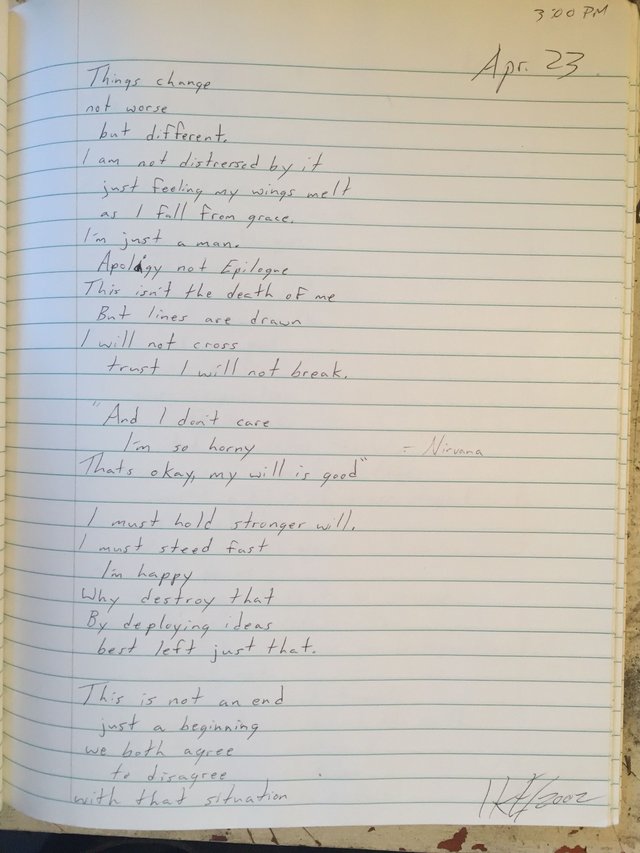 3:00 PM
Apr. 23
Things change
not worse
but different.
I am not distressed by it
just feeling my wings melt
as I fall from grace.
I'm just a man.
Apology not Epilogue
This isn't the death of me
But lines are drawn
I will not cross
trust I will not break.
"And I don't care
I'm so horny - Nirvana
Thats okay, my will is good"
I must hold stronger will.
I must steed fast
I'm happy
Why destroy that
By deploying ideas
best left just that.
This is not an end
just a beginning
we both agree
to disagree
with that situation
/2002